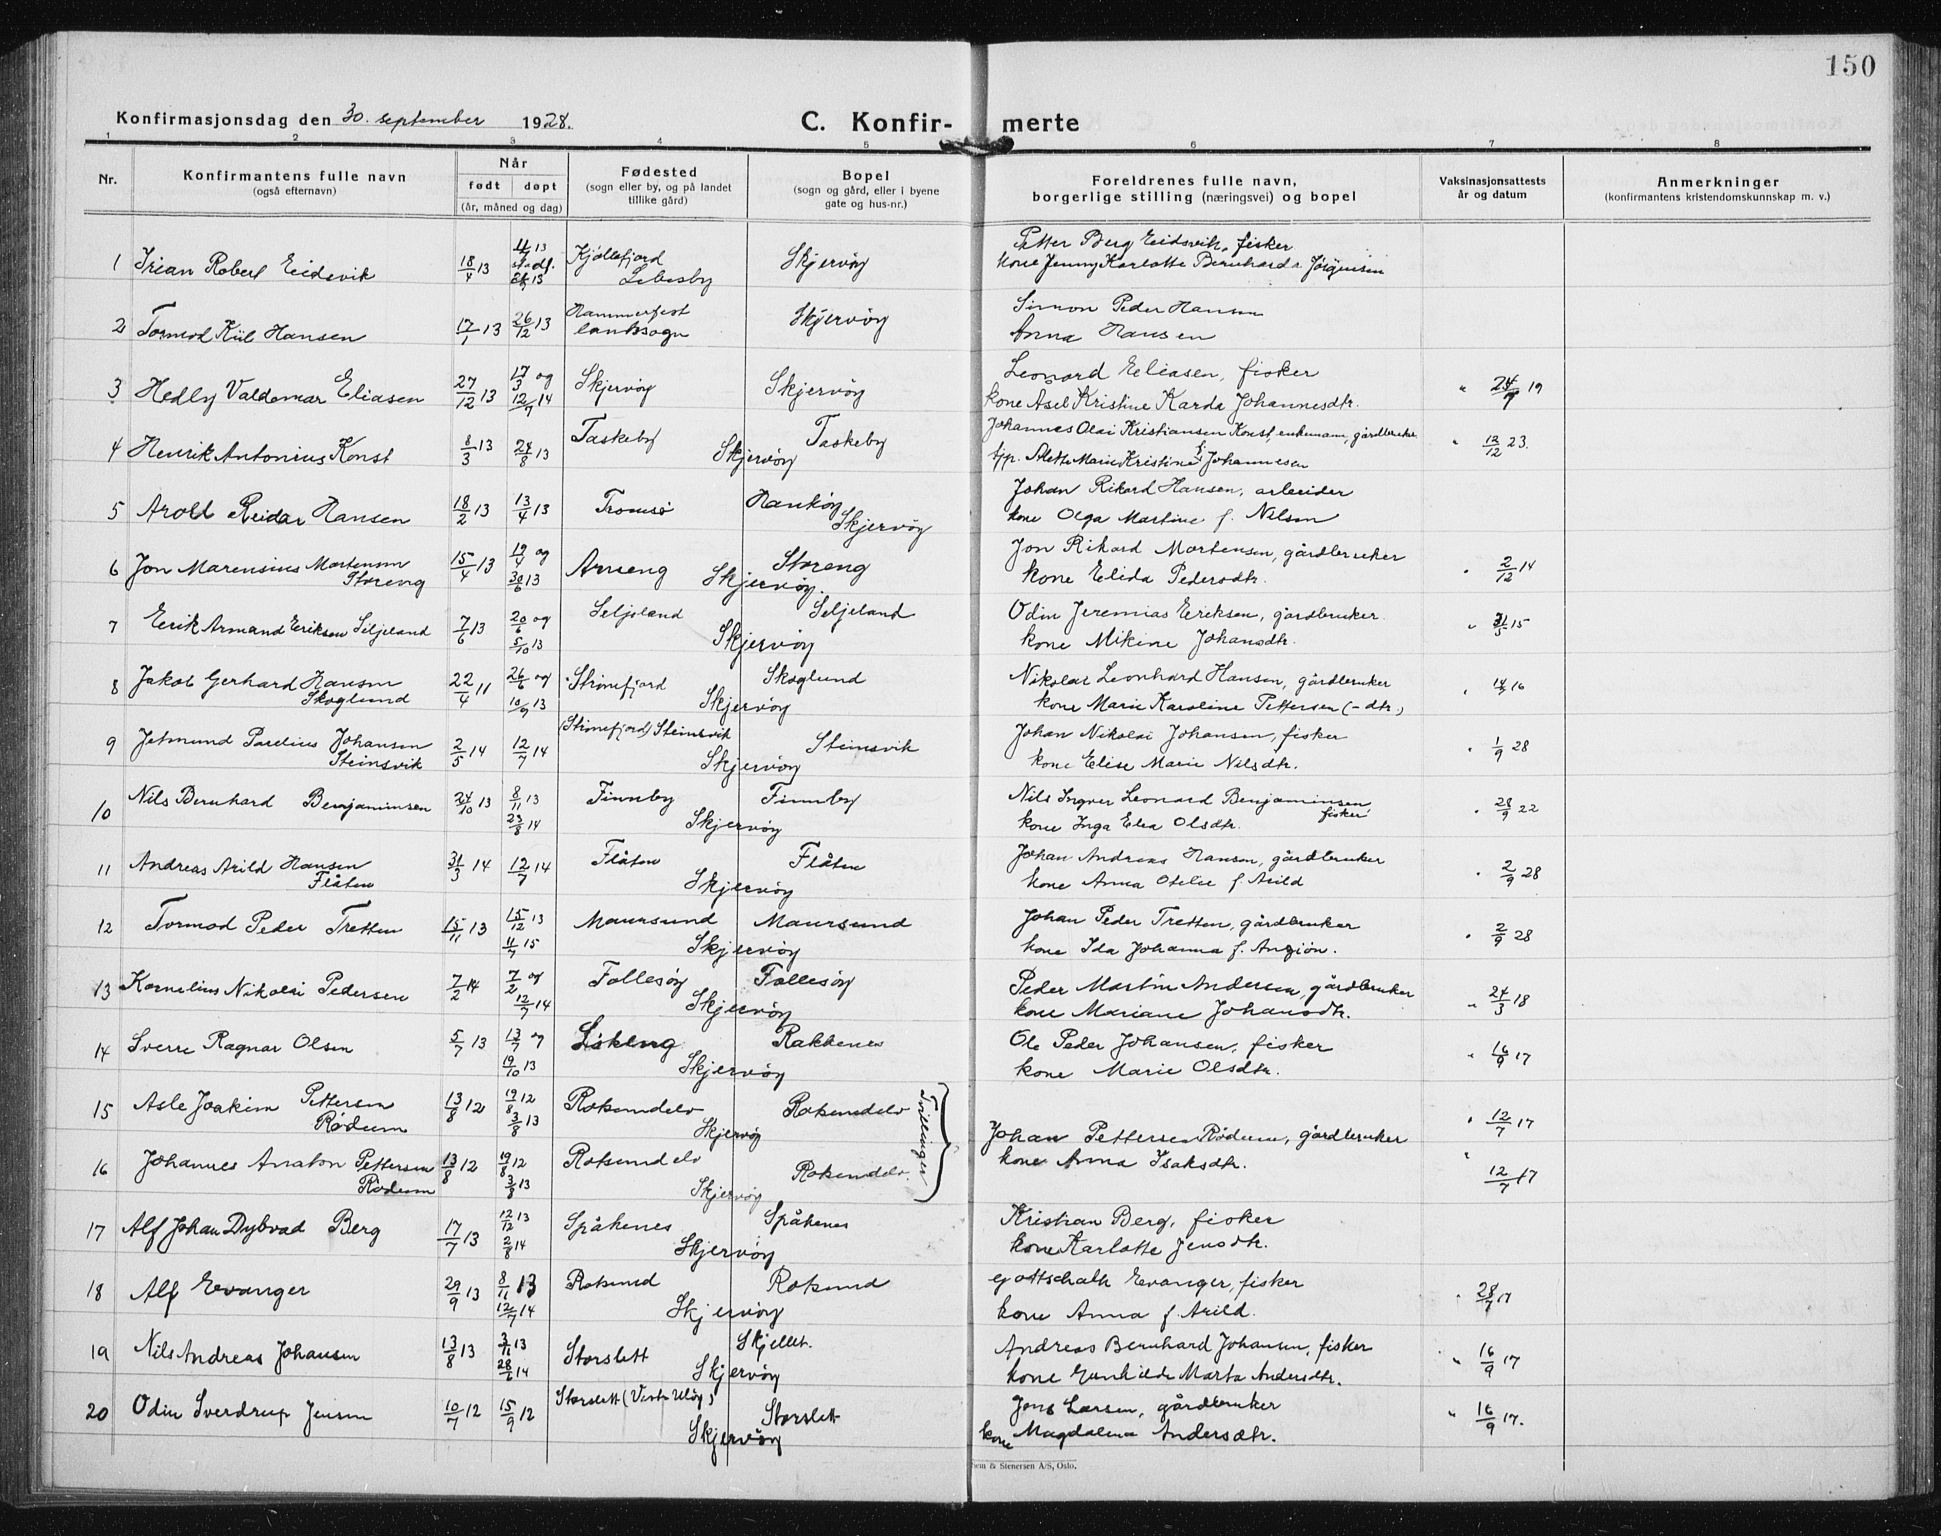 150
Konfirmasjonsdag den 30. september 1928. C. Konfir- merte
1 2 3 4 5 6 7 8
Nr. Konfirmantens fulle navn (også efternavn) Når født døpt (år, måned og dag) Fødested (sogn eller by, og på landet tillike gård) Bopel (sogn og gård, eller i byene gate og hus-nr.) Foreldrenes fulle navn, borgerlige stilling (næringsvei) og bopel Vaksinasjonsattests år og datum Anmerkninger (konfirmantens kristendomskunnskap m. v.)
1 Robert Eidsvik 18/4 13 Kjøllefjord Lebesby Skjervøy Petter Berg Eidsvik, fisker
kone Jenny Karlotte Bernharda Jörgensen
2 Tormod Kiil Hansen 17/1 13 26/12 13 Hammerfest landssogn Skjervøy Simon Peder Hansen
Anna Hansen
3 Hedly Valdemar Eliasen 27/12 13 17/3 og 12/7 14 Skjervøy Skjervøy Leonard Eliasen, fisker " 24/7 19
kone Asel Kristine Karda Johannesdtr.
4 Henrik Antonius Konst 8/3 13 24/8 13 Taskeby Taskeby Skjervøy Johannes Olai Kristiansen Konst, enkemann, gårdbruker " 12/12 23.
Alette Marie Kristine f. Johannesen
5 Arolt Reidar Hansen 18/2 13 13/4 13 Tromsö Hauköy Skjervøy Johan Rikard Hansen, arbeider
kone Olga Martine f. Nilsen
6 Jon Marensius Mortensen Storeng 15/4 13 19/4 og 30/6 13 Arneng Storeng Skjervøy. Jon Rikard Mortensen, gårdbruker " 2/12 14
kone Elida Pedersdtr.
7 Erik Armand Eriksen Seljeland 7/6 13 20/6 og 5/10 13 Seljeland Seljeland Skjervøy Odin Jeremias Eriksen, gårdbruker " 31/5 15
kone Mikine Johansdtr.
8 Jakob Gerhard Hansen Skoglund 22/4 11 26/6 og 10/9 13 Strinefjord Skoglund Skjervøy Nikolai Leonhard Hansen, gårdbruker " 16
kone Marie Karoline Pettersen (-dtr.)
9 Jetmund Parelius Johansen Steinsvik 2/5 14 12/7 14 (Strinefjord) Steinsvik Steinsvik Skjervøy Johan Nikolai Johansen, fisker " 1/9 28
kone Elise Marie Nilsdtr.
10 Nils Bernhard Benjaminsen 24/10 13 8/11 13 23/8 14 Finnby Finnby Skjervøy Nils Ingver Leonard Benjaminsen, fisker " 28/9 22
kone Inga Elea Olsdtr.
11 Andreas Arild Hansen Flåten 31/3 14 12/7 14 Flåten Flåten Skjervøy Johan Andreas Hansen, gårdbruker " 2/9 28
kone Anna Otelie f. Arild
12 Tormod Peder Tretten 15/11 13 15/12 13 11/7 15 Maursund Maursund Skjervøy Johan Peder Tretten, gårdbruker " 2/9 28
kone Ida Johanna f. Anziön.
13 Kornelius Nikolai Pedersen 7/2 14 7/2 og 12/7 14 Follesøy Follesøy Skjervøy Peder Martin Andersen, gårdbruker " 24/3 18
kone Mariane Johansdtr.
14 Sverre Ragnar Olsen 5/7 13 13/7 og 19/10 13 Rakkenes Skjervøy Ole Peder Johansen, fisker " 16/9 17
kone Marie Olsdtr.
15 Asle Joakim Pettersen Rödum 13/8 12 19/8 12 3/8 13 Roksundelv Roksundelv Skjervøy Tvillinger " 12/7 17
Johan Pettersen Rödum, gårdbruker
16 Johannes Anaton Pettersen Rödum 13/8 12 19/8 12 3/8 13 Roksundelv Roksundelv. Skjervøy kone Anna Isaksdtr. " 12/7 17
17 Alf Johan Dybvad Berg 17/7 13 12/12 13 2/8 14 Spåkenes Spåkenes Skjervøy Kristian Berg, fisker
kone Karlotte Jensdtr.
18 Alf Evanger 29/9 13 8/11 13 12/7 14 Roksund Roksund Skjervøy Gottschalk Evanger, fisker " 28/7 17
kone Anna f. Arild.
19 Nils Andreas Johansen 13/8 13 3/11 13 28/6 14 Storslett Skjellet. Skjervøy Andreas Bernhard Johansen, fisker " 16/9 17
kone Gunhilde Marta Andersdtr.
20 Odin Sverdrup Jensen 10/7 12 15/9 12 Storslett (Vestr Uløy) Storslett Skjervøy Jens Larsen, gårdbruker " 16/9 17.
kone Magdalena Andersdtr.
& Stenersen A/S, Oslo.